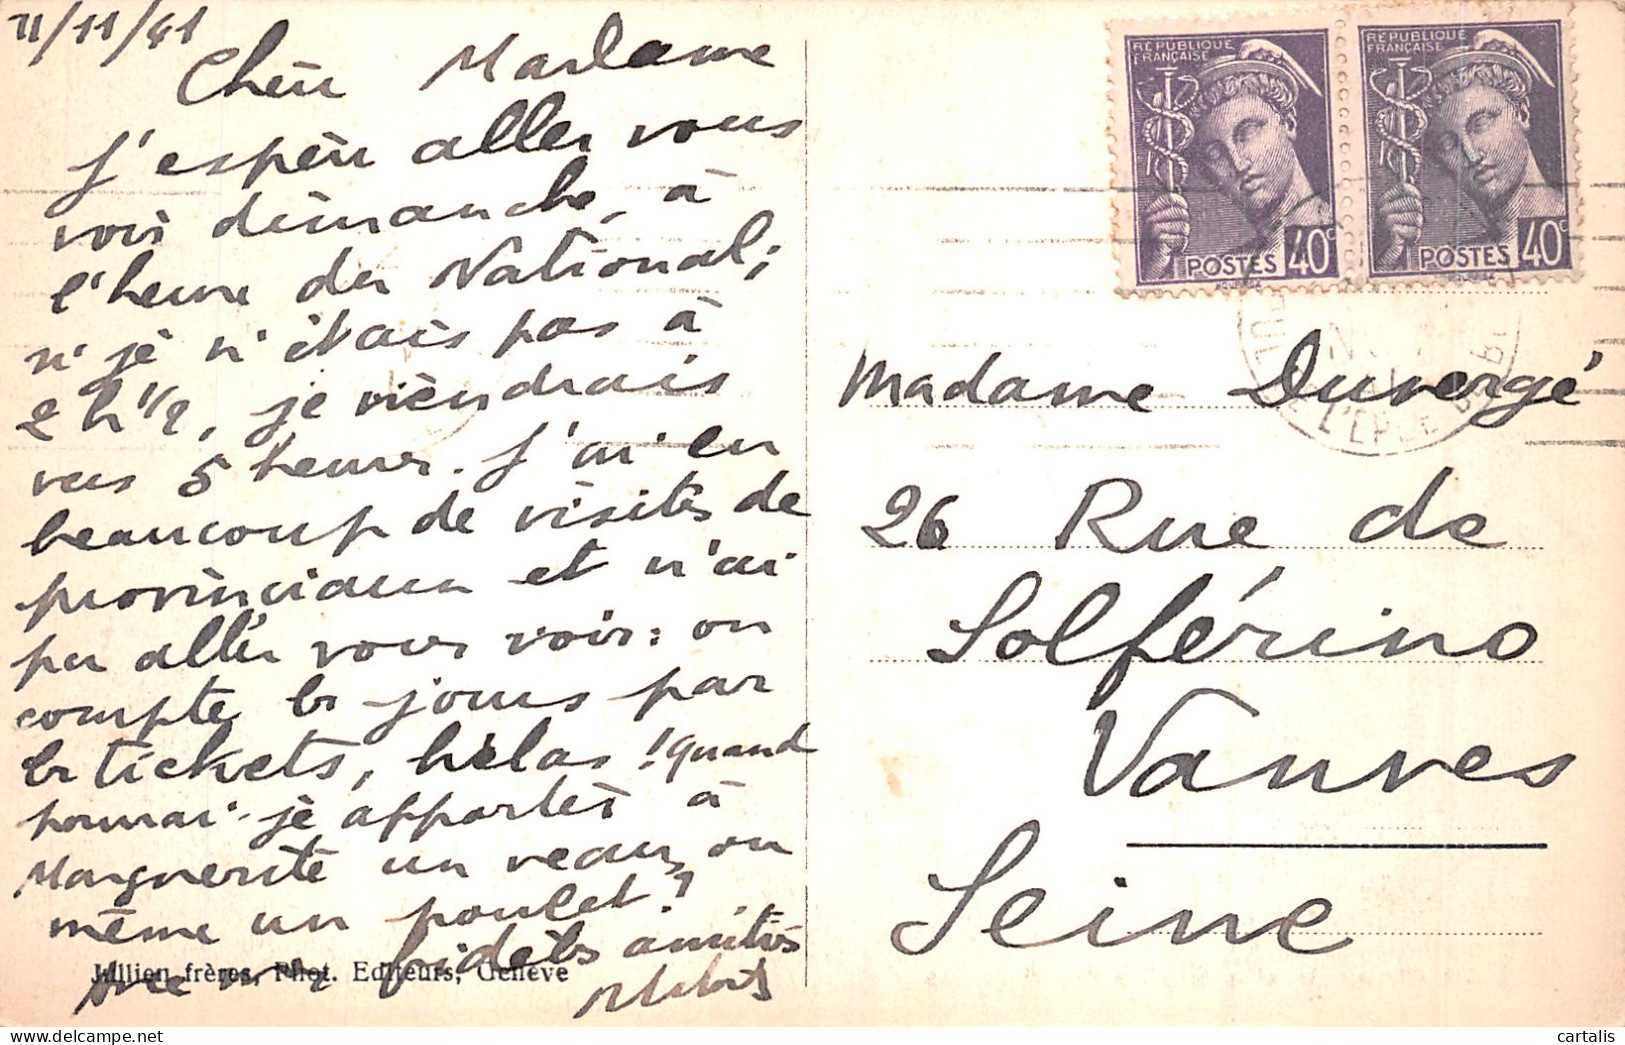 11/11/41
Chère Madame
J'espère aller vous
voir dimanche, à
l'heure du National;
si je n'étais pas à
2 h 1/2, je viendrais
vers 5 heures. J'ai eu
beaucoup de visites de
provinciaux et n'ai
pu aller vous voir: on
compte les jours par
les tickets, hélas! Quand
pourrai-je apporter à
Marguerite un veau, ou
même un poulet?
Avec mes fidèles amitiés
Jullien frères, Phot. Editeurs, Genève
RÉPUBLIQUE
FRANÇAISE
POSTES 40c
RÉPUBLIQUE
FRANÇAISE
POSTES 40c
DE L'EPEE
Madame Duvergé
26 Rue de
Solférino
Vanves
Seine
cartalis